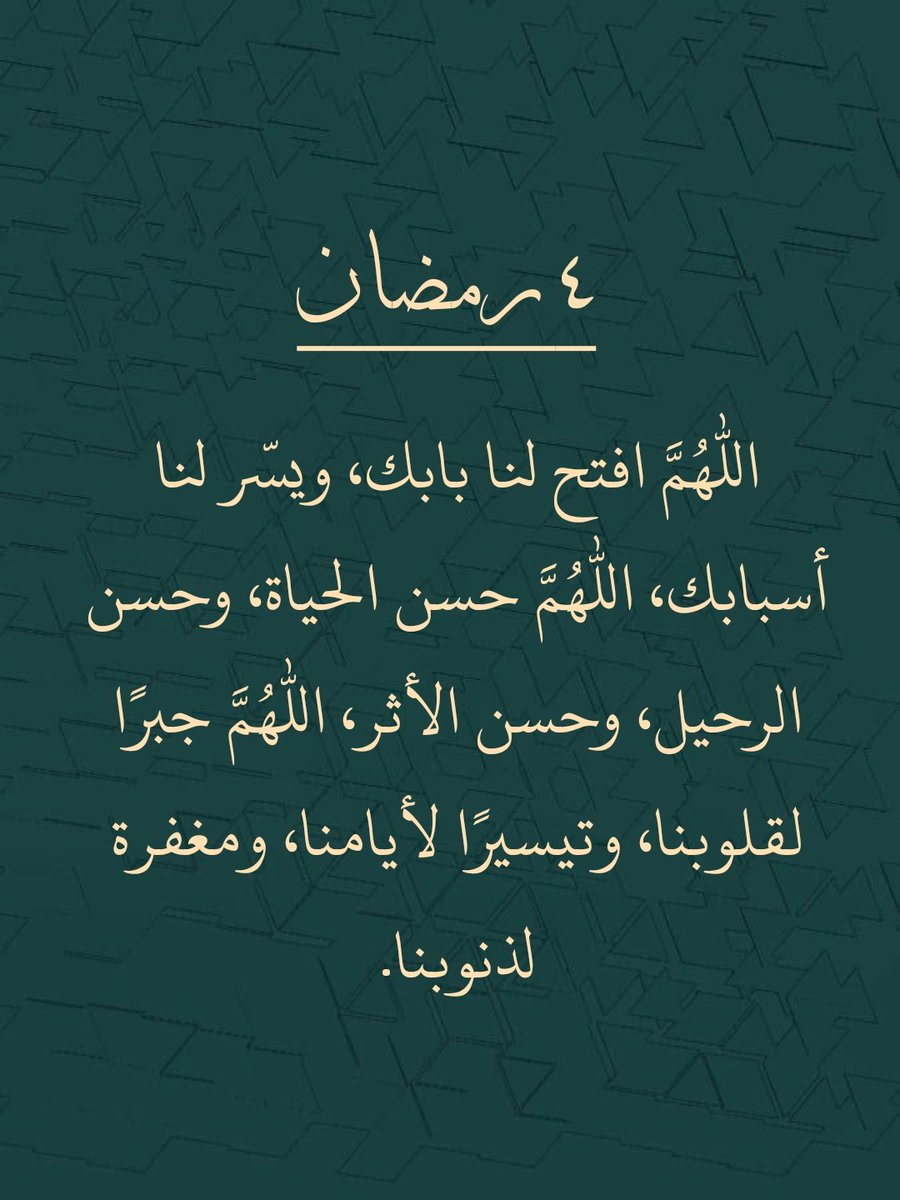 ٤ رمضان
اللّٰهُمَّ افتح لنا بابك، ويسّر لنا
أسبابك، اللّٰهُمَّ حسن الحياة، وحسن
الرحيل، وحسن الأثر، اللّٰهُمَّ جبرًا
لقلوبنا، وتيسيرًا لأيامنا، ومغفرة
لذنوبنا.